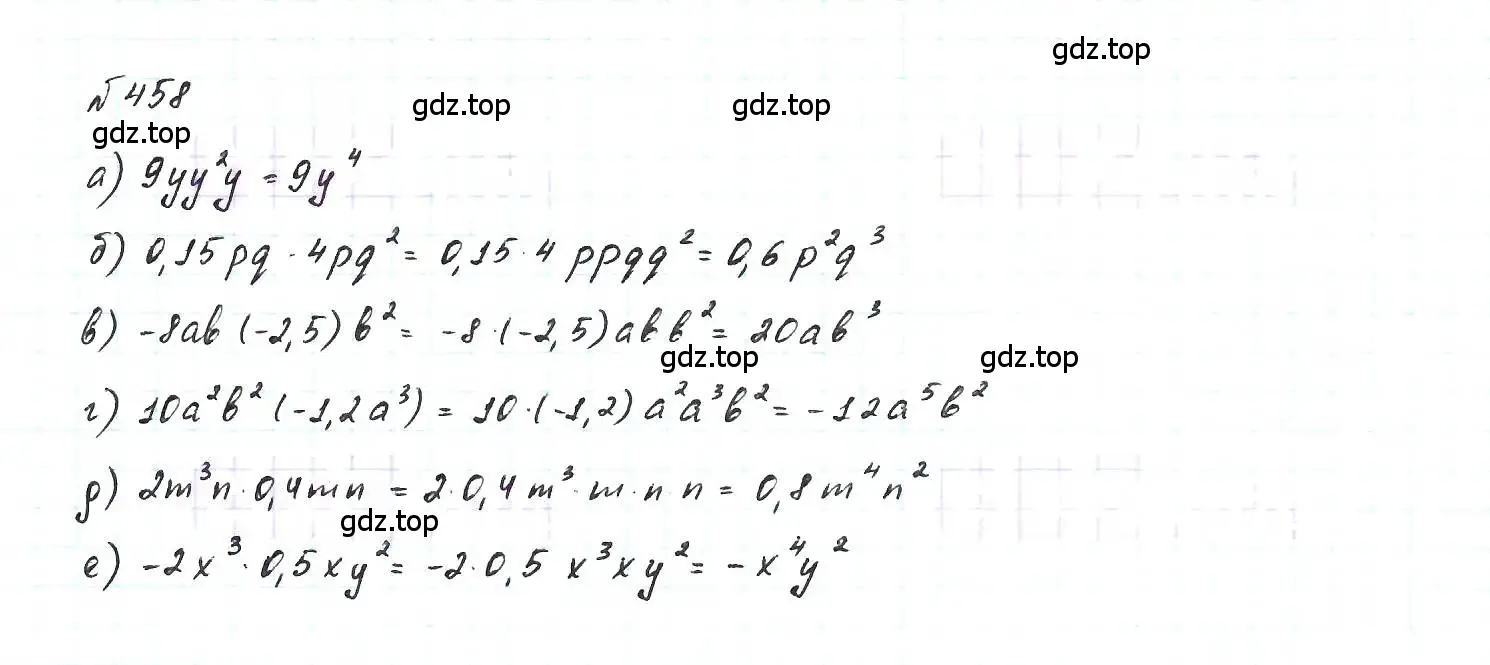 gdz.top
№ 458
gdz.top gdz.top
gdz.top
а) 9yy²y = 9y⁴
б) 0,15pq · 4pq² = 0,15 · 4 ppqq² = 0,6p²q³
в) -8ab (-2,5) b² = -8 · (-2,5) abb² = 20ab³
gdz.top gdz.top
г) 10a²b² (-1,2a³) = 10 · (-1,2) a²a³b² = -12a⁵b²
д) 2m³n · 0,4mn = 2 · 0,4 m³ · m · n · n = 0,8m⁴n²
gdz.top
е) -2x³ · 0,5xy² = -2 · 0,5 x³xy² = -x⁴y²